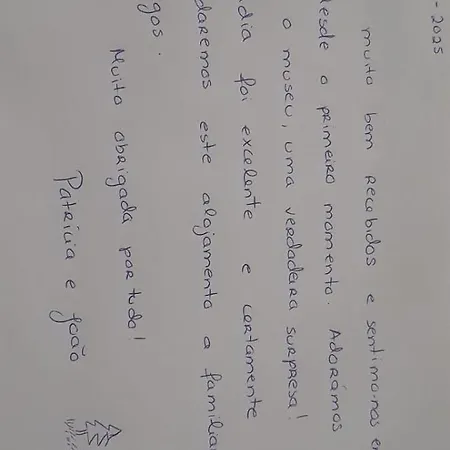 - 2025
muito bem recebidos e sentimo-nos e
desde o primeiro momento. Adorámos
o museu, uma verdadeira surpresa!
dia foi excelente e certamente
daremos este alojamento a familia
gos.
Muito obrigada por tudo!
Patrícia e João